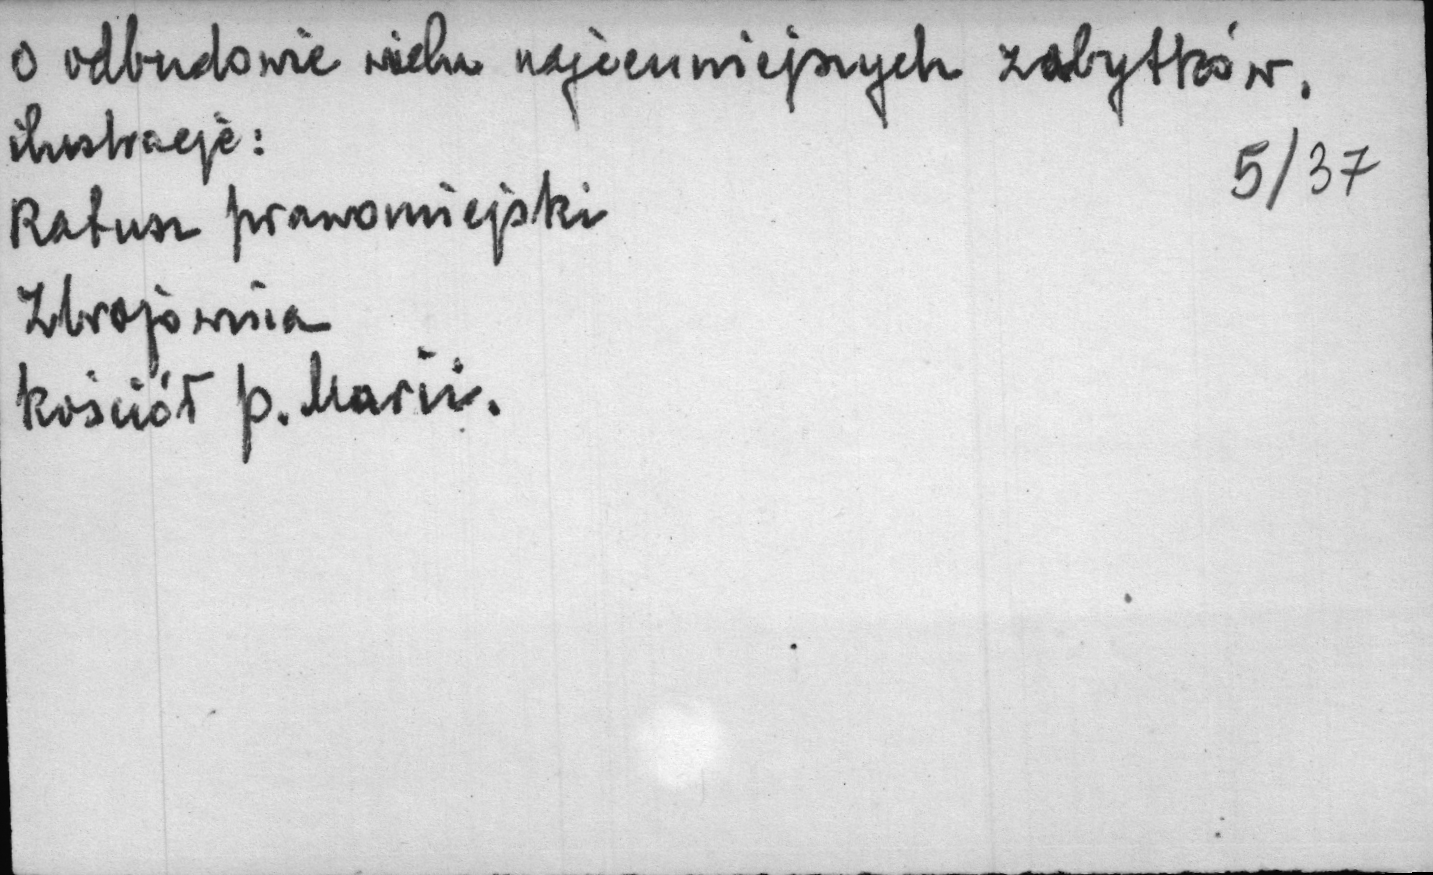 o odbudowie wielu najcenniejszych zabytków.
ilustracje:
5/37
Ratusz prawomiejski
Zbrojownia
kościół p. Marii.